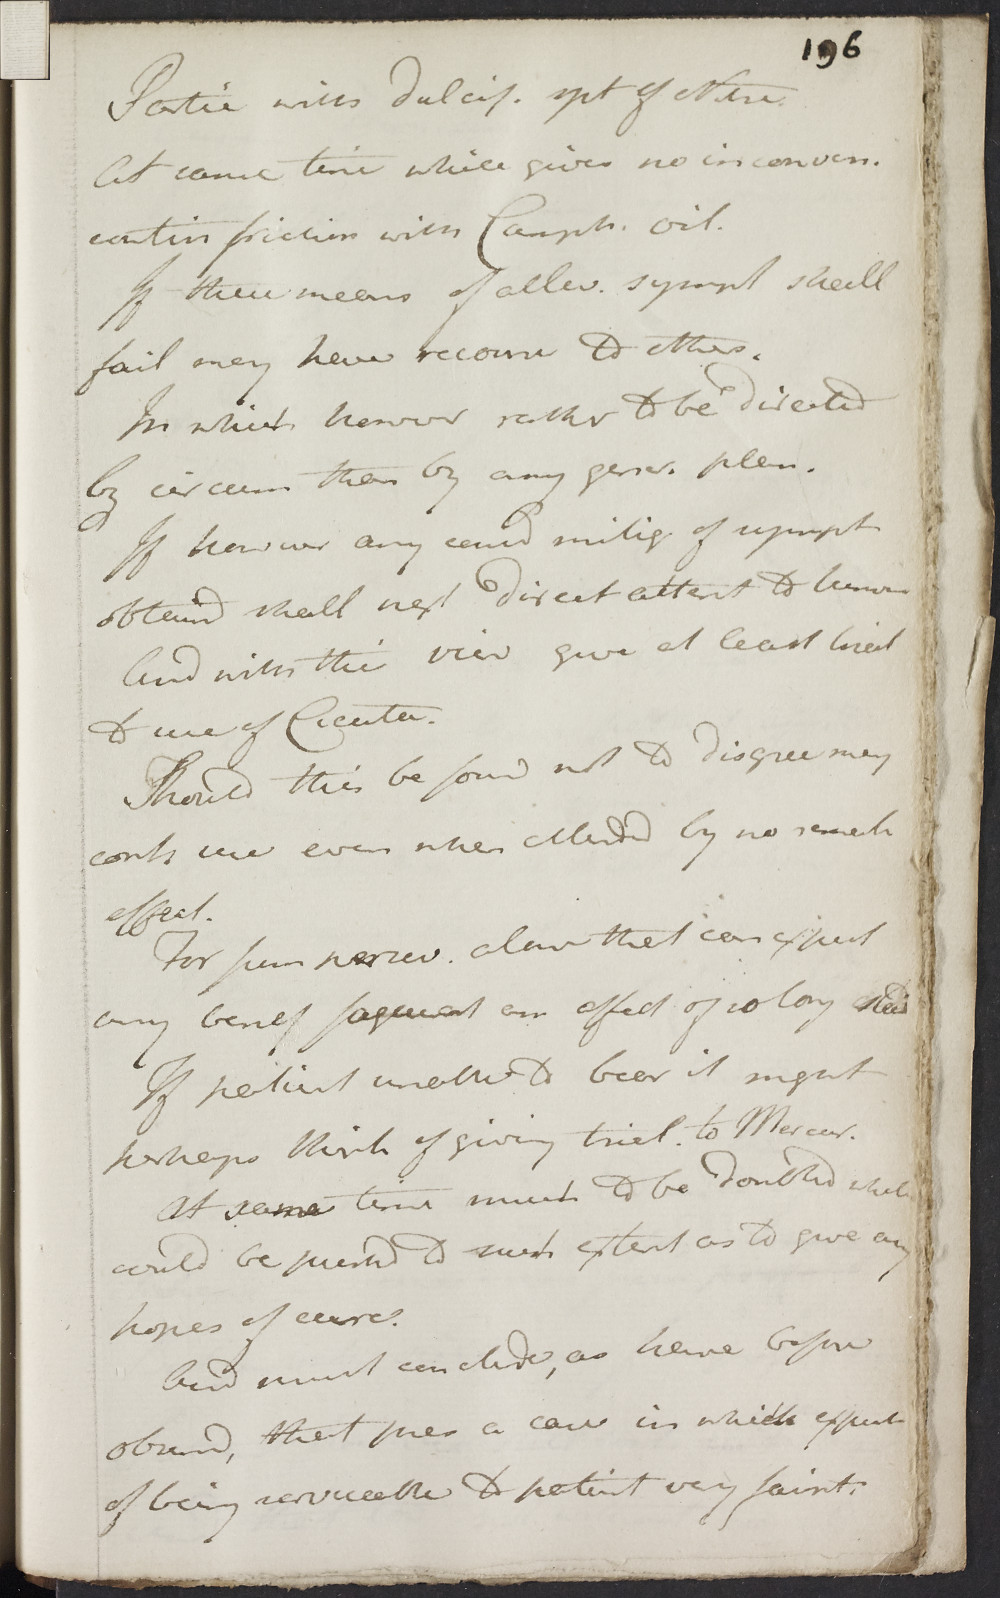 196
with Dulcif. spt of Nitre.
At same time while gives no inconven.
contin friction with Camph. oil.
If these means of allev. sympt shall
fail may have recourse to others.
In which however rather to be directed
by circum than by any gener. plan.
If however any consid mitig of sympt
obtaind shall next direct attent to
And with this view give at least trial
to use of Cicuta.
Should this be found not to disagree may
cont use even when attended by no remark
effect.
For from persev. alone that can expect
any benef in affect of so long
If patient unable to bear it might
perhaps think of giving trial. to Mercur.
At same time much to be doubted
could be pushd to such extent as to give any
hopes of cure.
And must conclude, as have before
observd, that pres a case in which expect
of being serviceable to patient very faint.